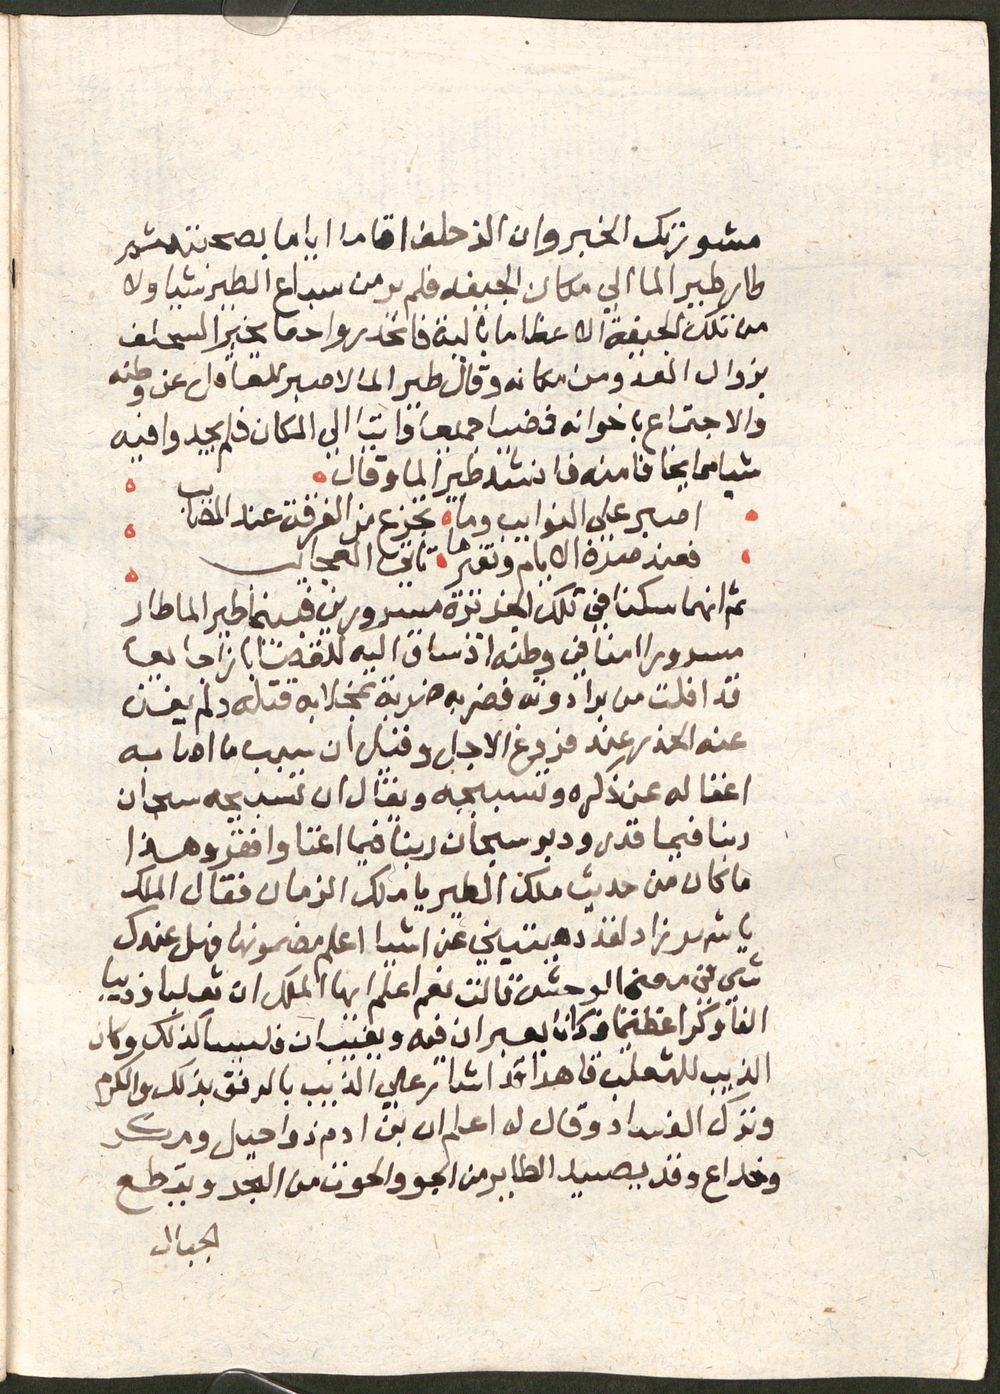 مشورتك الخير وان الزحلف اقاما اياما بصحبته ثم
طار طير الما الي مكان الجيفه فلم ير من سباع الطير شيا ولا
من تلك الجيفة الا عظاما بالية فانحدر واحقا يخبر السحلف
بزوال العدو من مكانه وقال طير الما لا صبر للعاقل عن وطنه
والاجتماع باخوانه فمضيا جميعا واتيا الي المكان فلم يجدوا فيه
شيا مما يخافا منه فانشد طير الما وقال
اصبر علي النوايب وما تجزع من الفرقة عند المصايب
فعند صدة الايام وتغيرها تاتي العجايب
ثم انهما سكنا في تلك الجزيرة مسرورين فبينما طير الما طار
مسرورا امنا في وطنه اذ ساق اليه للقضا بازا جايعا
قد افلت من يد ادونه فضربه ضربة بمخلابه قتله ولم يغن
عنه الحذر عند فروغ الاجل وقيل ان سبب ما اصابه
اغفاله عن ذكره وتسبيحه ويقال ان تسبيحه سبحان
ربنا فيما قدر ودبر سبحان ربنا فيما اغنا وافقر وهذا
ما كان من حديث ملك الطير يا ملك الزمان فقال الملك
يا شهرزاد لقد دهيتيني عن اشيا اعلم مضمونها فهل عندك
شي في معني الوحشي قالت نعم اعلم ايها الملك ان ثعلبا وذيبا
الفا وكرا عظيما وكانا يعبران فيه ويغيبان فلبسا كذلك وكان
الذيب للثعلب قاهرا قد اشار علي الذيب بالرفق بذلك والكرم
وترك الفساد وقال له اعلم ان بن ادم ذوا حيل ومكر
وخداع وقد يصيد الطاير من الجو والحوت من البحر ويقطع
الجبال